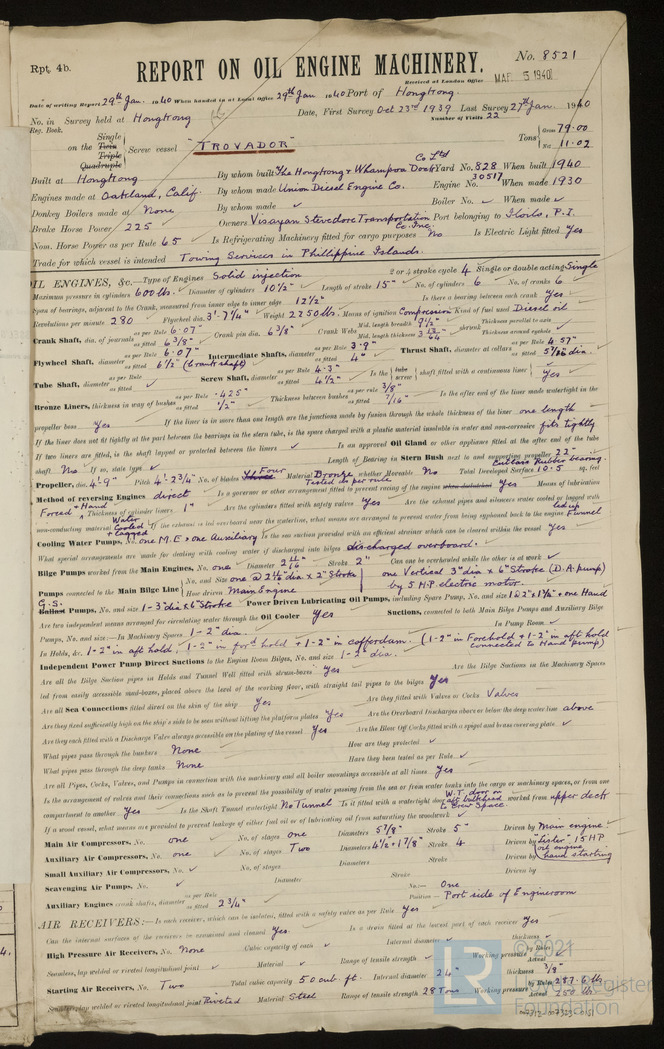 Rpt. 4b.
No. 8521
REPORT ON OIL ENGINE MACHINERY.
Received at London Office MAR 5 1940
Date of writing Report 29th Jan. 1940 When handed in at Local Office 29th Jan 1940 Port of Hongkong.
No. in Survey held at Hongkong Date, First Survey Oct 23rd 1939 Last Survey 27th Jan. 1940
Reg. Book. Number of Visits 22
Single
on the Twin Screw vessel "TROVADOR" Tons Gross 79.00
Triple
Quadruple
Net 11.02
Built at Hongkong By whom built The Hongkong & Whampoa Dock Co Ltd Yard No. 828 When built 1940
Engines made at Oakland, Calif. By whom made Union Diesel Engine Co. Engine No. 30517 When made 1930
Donkey Boilers made at None By whom made ✓ Boiler No. ✓ When made ✓
Brake Horse Power 225 Owners Visayan Stevedore Transportation Co. Inc. Port belonging to Iloilo, P.I.
Nom. Horse Power as per Rule 65 Is Refrigerating Machinery fitted for cargo purposes No Is Electric Light fitted Yes
Trade for which vessel is intended Towing Services in Phillippine Islands.
OIL ENGINES, &c.—Type of Engines Solid injection 2 or 4 stroke cycle 4 Single or double acting Single
Maximum pressure in cylinders 600 lbs. Diameter of cylinders 10½" Length of stroke 15" No. of cylinders 6 No. of cranks 6
Span of bearings, adjacent to the Crank, measured from inner edge to inner edge 12½" Is there a bearing between each crank Yes
Revolutions per minute 280 Flywheel dia. 3'-7⅛" Weight 2250 lbs. Means of ignition Compression Kind of fuel used Diesel oil
Crank Shaft, dia. of journals as per Rule 6.07" as fitted 6⅜" Crank pin dia. 6⅜" Crank Webs Mid. length breadth 9½" Mid. length thickness shrunk Thickness parallel to axis ✓ Thickness around eyehole ✓
Flywheel Shaft, diameter as per Rule 6.07" as fitted 6½" (Crankshaft) Intermediate Shafts, diameter as per Rule 3.9" as fitted 4" Thrust Shaft, diameter at collars as per Rule 4.57" as fitted
Tube Shaft, diameter as per Rule ✓ as fitted Screw Shaft, diameter as per Rule 4.3" as fitted 4½" Is the tube screw shaft fitted with a continuous liner Yes
Bronze Liners, thickness in way of bushes as per Rule .425" as fitted ½" Thickness between bushes as per rule 3/8" as fitted 7/16" Is the after end of the liner made watertight in the
propeller boss Yes If the liner is in more than one length are the junctions made by fusion through the whole thickness of the liner one length
If the liner does not fit tightly at the part between the bearings in the stern tube, is the space charged with a plastic material insoluble in water and non-corrosive fits tightly
If two liners are fitted, is the shaft lapped or protected between the liners ✓ Is an approved Oil Gland or other appliance fitted at the after end of the tube
shaft No If so, state type ✓ Length of Bearing in Stern Bush next to and supporting propeller 22" Cutless Rubber bearing.
Propeller, dia. 4'-9" Pitch 4'-2¾" No. of blades Four Material Bronze whether Moveable No Total Developed Surface 10.5 sq. feet
Method of reversing Engines direct Is a governor or other arrangement fitted to prevent racing of the engine Tested as per rule Yes Means of lubrication
Forced & Hand Thickness of cylinder liners 1" Are the cylinders fitted with safety valves Yes Are the exhaust pipes and silencers water cooled or lagged with
non-conducting material Water Cooled & Lagged If the exhaust is led overboard near the waterline, what means are arranged to prevent water from being syphoned back to the engine led up Funnel
Cooling Water Pumps, No. one M.E & one Auxiliary Is the sea suction provided with an efficient strainer which can be cleared within the vessel Yes
What special arrangements are made for dealing with cooling water if discharged into bilges discharged overboard.
Bilge Pumps worked from the Main Engines, No. one Diameter Stroke 2" Can one be overhauled while the other is at work ✓
Pumps connected to the Main Bilge Line No. and Size one @ 2 1/16" dia x 2" Stroke one Vertical 3" dia x 6" Stroke (D.A. pump)
How driven Main Engine by 5 H.P. electric motor.
G.S.
Ballast Pumps, No. and size 1-3"dia x 6" Stroke Power Driven Lubricating Oil Pumps, including Spare Pump, No. and size & one Hand
Are two independent means arranged for circulating water through the Oil Cooler Yes Suctions, connected to both Main Bilge Pumps and Auxiliary Bilge
Pumps, No. and size:—In Machinery Spaces 1-2" dia. In Pump Room ✓
In Holds, &c. 1-2" in aft hold, 1-2" in for'd hold & 1-2" in cofferdam. (1-2" in Forehold & 1-2" in aft hold connected to Hand pump)
Independent Power Pump Direct Suctions to the Engine Room Bilges, No. and size 1-2" dia.
Are all the Bilge Suction pipes in Holds and Tunnel Well fitted with strum-boxes Yes Are the Bilge Suctions in the Machinery Spaces
led from easily accessible mud-boxes, placed above the level of the working floor, with straight tail pipes to the bilges Yes
Are all Sea Connections fitted direct on the skin of the ship Yes Are they fitted with Valves or Cocks Valves
Are they fixed sufficiently high on the ship's side to be seen without lifting the platform plates Yes Are the Overboard Discharges above or below the deep water line above
Are they each fitted with a Discharge Valve always accessible on the plating of the vessel Yes Are the Blow Off Cocks fitted with a spigot and brass covering plate ✓
What pipes pass through the bunkers None How are they protected ✓
What pipes pass through the deep tanks None Have they been tested as per Rule ✓
Are all Pipes, Cocks, Valves, and Pumps in connection with the machinery and all boiler mountings accessible at all times Yes
Is the arrangement of valves and their connections such as to prevent the possibility of water passing from the sea or from water tanks into the cargo or machinery spaces, or from one
compartment to another Yes Is the Shaft Tunnel watertight No Tunnel Is it fitted with a watertight door W.T. door on aft bulkhead to Crew Space. worked from upper deck
If a wood vessel, what means are provided to prevent leakage of either fuel oil or of lubricating oil from saturating the woodwork ✓
Main Air Compressors, No. one No. of stages one Diameters 5⅞" Stroke 5" Driven by Main engine
Auxiliary Air Compressors, No. one No. of stages Two Diameters 4½" & 1⅞" Stroke 4 Driven by "Lister" 15 HP oil engine,
Small Auxiliary Air Compressors, No. ✓ No. of stages Diameters Stroke Driven by hand starting
Scavenging Air Pumps, No. ✓ Diameter Stroke Driven by
Auxiliary Engines crank shafts, diameter as per Rule as fitted 2¾" No:— One
Position:— Port side of Engineroom
AIR RECEIVERS:—Is each receiver, which can be isolated, fitted with a safety valve as per Rule Yes
Can the internal surfaces of the receivers be examined and cleaned Yes. Is a drain fitted at the lowest part of each receiver Yes
High Pressure Air Receivers, No. None Cubic capacity of each ✓ Internal diameter ✓ thickness ✓
Seamless, lap welded or riveted longitudinal joint ✓ Material ✓ Range of tensile strength ✓ Working pressure by Rules Actual
Starting Air Receivers, No. Two Total cubic capacity 50 cub. ft. Internal diameter 24" thickness 3/8"
Seamless, lap welded or riveted longitudinal joint Riveted Material Steel Range of tensile strength 28 Tons Working pressure by Rules 287.6 lbs Actual 250 lbs
LR © 2021
Lloyd's Register
Foundation